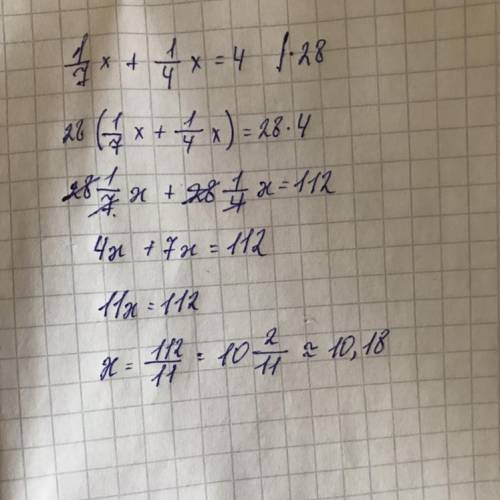 1/7 x + 1/4 x = 4 /·28
28(1/7 x + 1/4 x) = 28·4
28 1/7 x + 28 1/4 x = 112
4x + 7x = 112
11x = 112
x = 112/11 = 10 2/11 ≈ 10,18